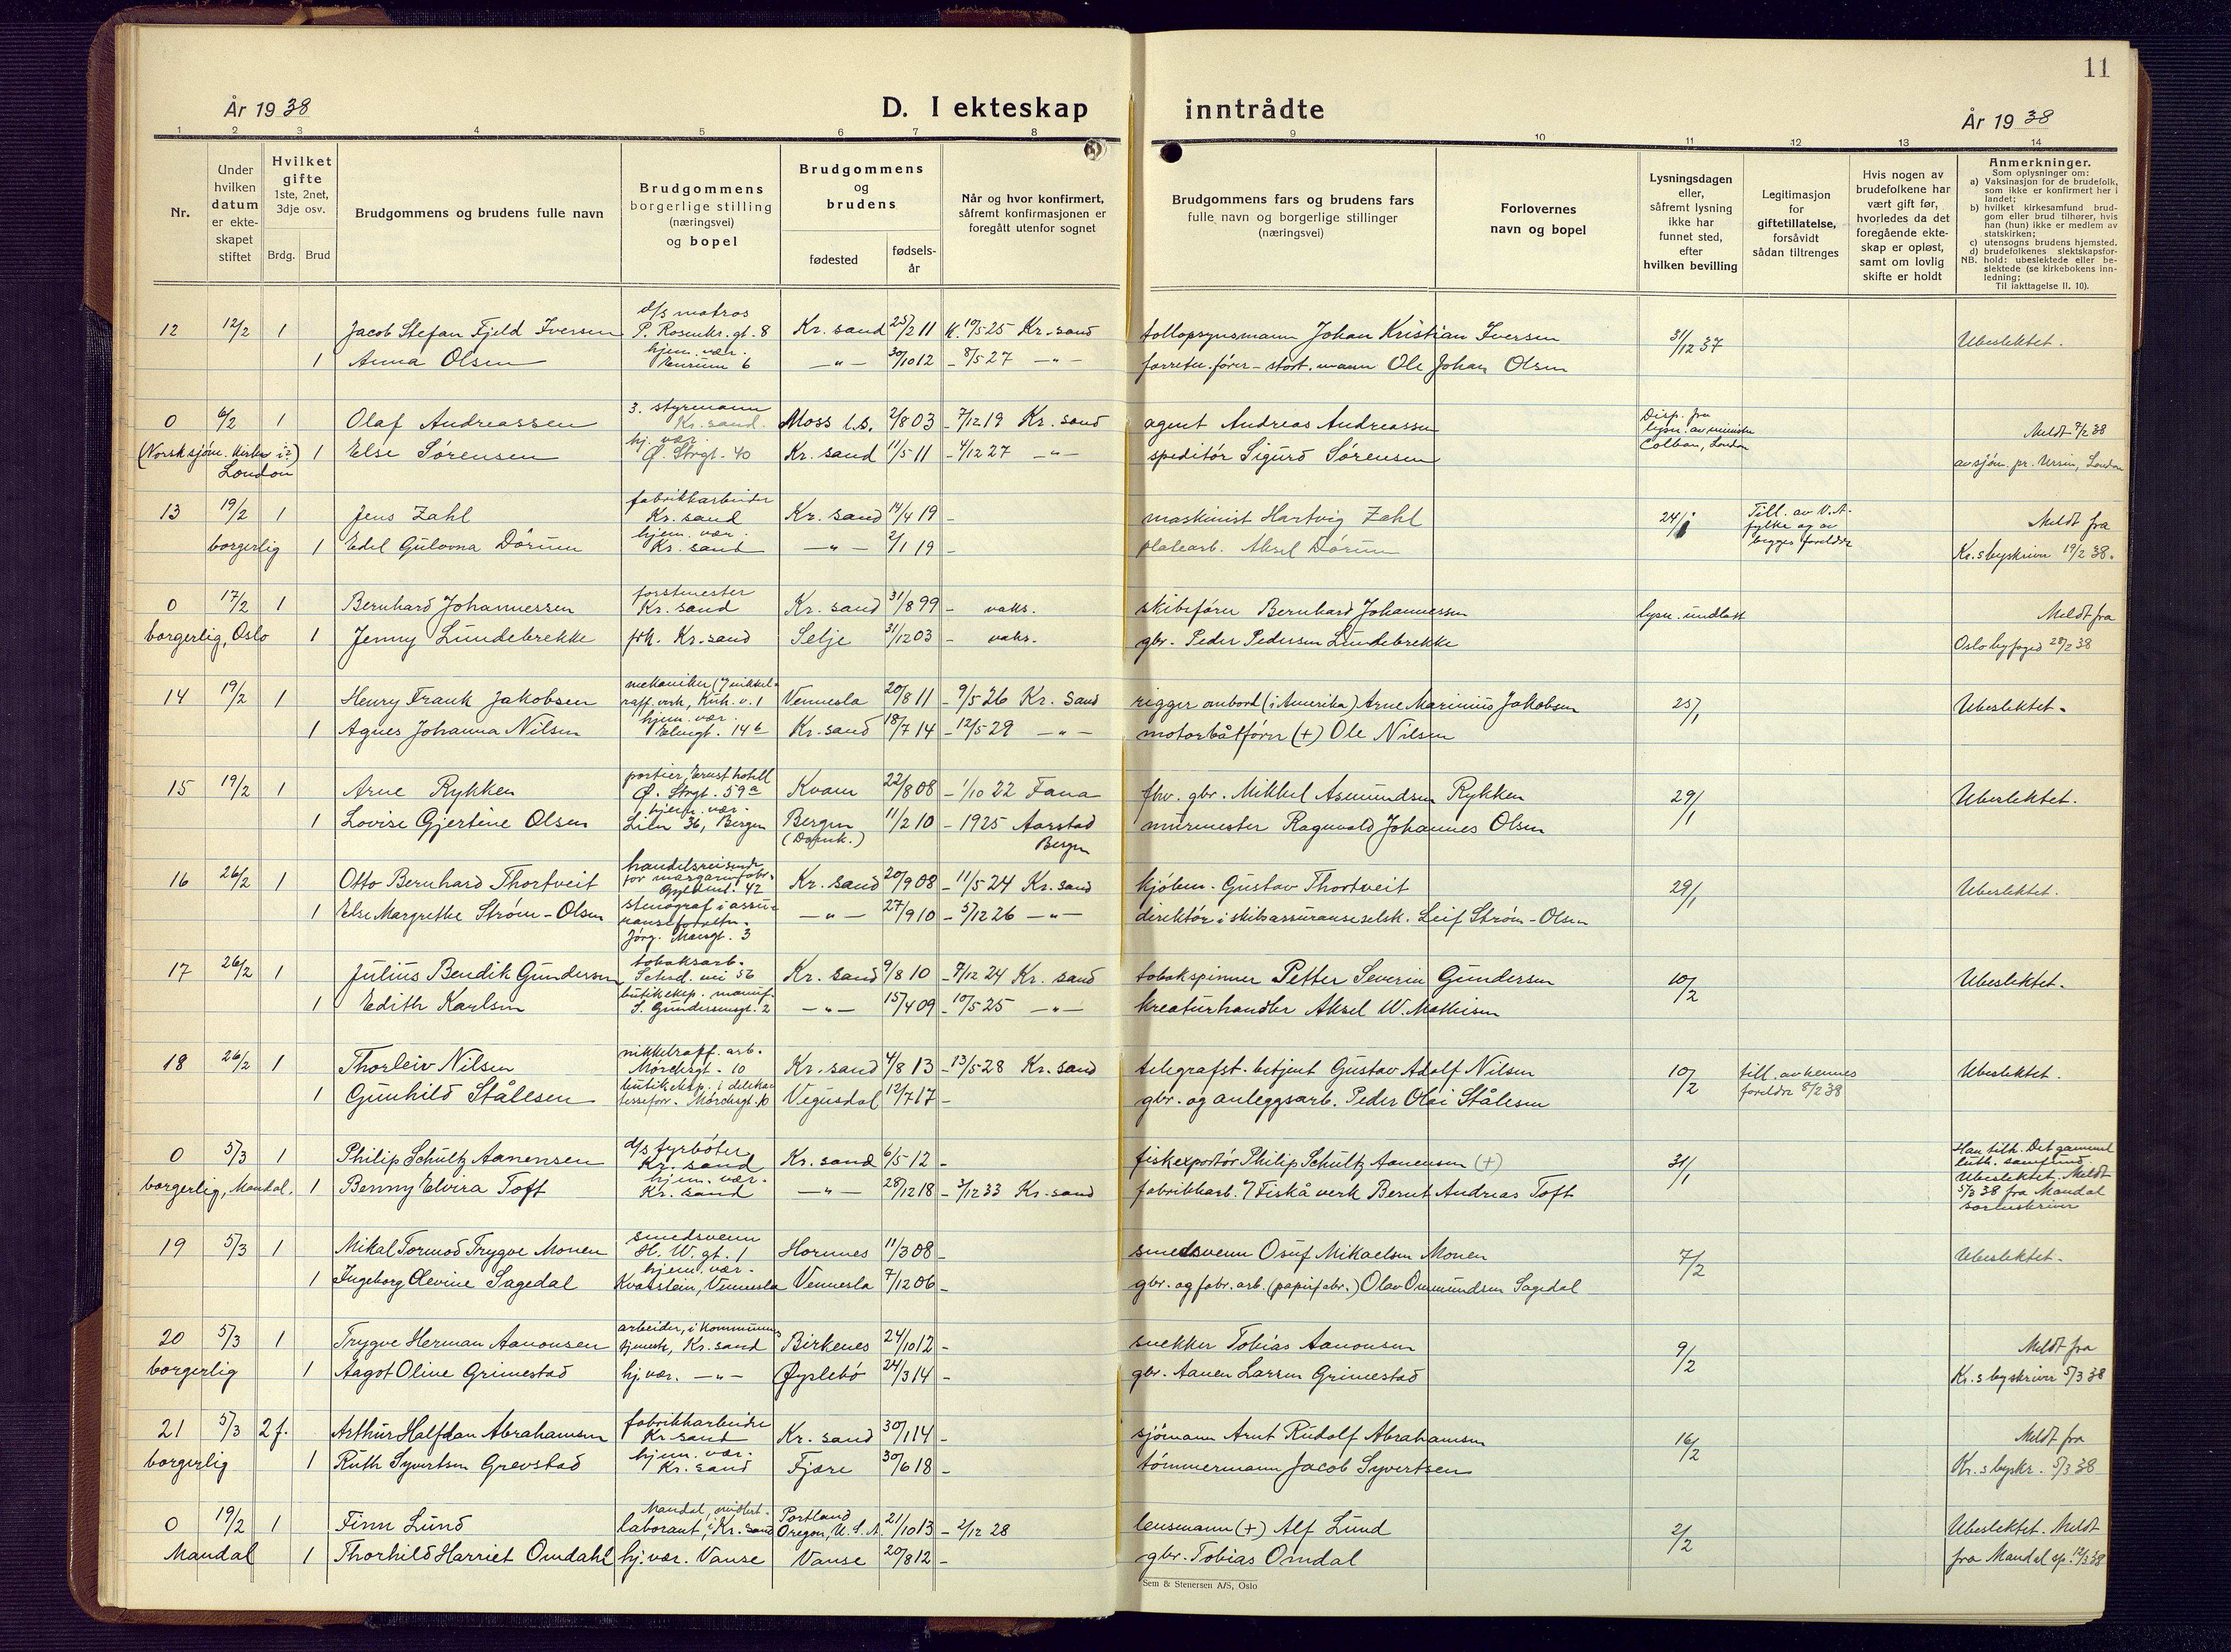 11
År 1938
D. I ekteskap inntrådte
År 1938
1 2 3 4 5 6 7 8 9 10 11 12 13 14
Nr.
Under hvilken datum er ekte-skapet stiftet
Hvilket gifte 1ste, 2net, 3dje osv.
Brdg. Brud
Brudgommens og brudens fulle navn
Brudgommens borgerlige stilling (næringsvei) og bopel
Brudgommens og brudens
fødested
fødsels-år
Når og hvor konfirmert, såfremt konfirmasjonen er foregått utenfor sognet
Brudgommens fars og brudens fars fulle navn og borgerlige stillinger (næringsvei)
Forlovernes navn og bopel
Lysningsdagen eller, såfremt lysning ikke har funnet sted, efter hvilken bevilling
Legitimasjon for giftetillatelse, forsåvidt sådan tiltrenges
Hvis nogen av brudefolkene har vært gift før, hvorledes da det foregående ekte-skap er opløst, samt om lovlig skifte er holdt
Anmerkninger.
Som oplysninger om:
a) Vaksinasjon for de brudefolk, som ikke er konfirmert her i landet;
b) hvilket kirkesamfund brud-gom eller brud tilhører, hvis han (hun) ikke er medlem av statskirken;
c) utensogns brudens hjemsted.
d) brudefolkenes slektskapsfor-hold: ubeslektede eller be-slektede (se kirkebokens inn-ledning;
NB.
Til iakttagelse II. 10).
12 12/2 1 Jacob Stefan Fjeld Iversen d/s matros P. Rosenkr. gt. 8 Kr. sand 25/2 11 K. 10/5 25 Kr. sand tollopsynsmann Johan Kristian Iversen 31/12 37 Ubeslektet.
1 Anna Olsen hjem. vær. 6 — „ — 30/10 12 - 8/5 27 — „ — forretn. fører - stort. mann Ole Johan Olsen
0 6/2 1 Olaf Andreassen 3. styrmann Kr. sand. Moss l.s. 2/8 03 - 7/12 19 Kr. sand agent Andreas Andreassen Disp. fra lysn. av minister Colban, London Meldt 7/2 38
(Norsk sjøm. kirke i London) 1 Else Sørensen hj. vær. Ø. Strgt. 40 Kr. sand 11/5 11 - 4/12 27 — „ — speditør Sigurd Sørensen av sjøm. pr. Ursin, London
13 19/2 1 Jens Zahl fabrikkarbeider Kr. sand Kr. sand 14/4 19 - maskinist Hartvig Zahl 24/1 Till. av V.A. fylke og av begges foreldre Meldt fra
borgerlig 1 Edel Gulovna Dörum hjem. vær. Kr. sand — „ — 2/1 19 - platearb. Aksel Dörum Kr.s byskriver 19/2 38.
0 17/2 1 Bernhard Johannessen forstmester Kr. sand Kr. sand 31/8 99 - vaks. skibsfører Bernhard Johannessen lysn. undlatt Meldt fra
borgerlig, Oslo 1 Jenny Lundebrekke frk. Kr. sand Selje 31/12 03 - vaks. gbr. Peder Pedersen Lundebrekke Oslo byfoged 28/2 38
14 19/2 1 Henry Frank Jakobsen mekaniker (v/ nikkel-raff. verk, Kirk. v. 1 Vennesla 20/8 11 - 9/5 26 Kr. sand rigger ombord (i Amerika) Arne Marinius Jakobsen 25/1 Ubeslektet.
1 Agnes Johanna Nilsen hjem. vær. Elvegt. 14 b Kr. sand 18/7 14 - 12/5 29 — „ — motorbåtfører (+) Ole Nilsen
15 19/2 1 Arne Rykken portier, Ernst hotell Ø. Strgt. 59a Kvam 22/8 08 - 1/10 22 Fana fhv. gbr. Mikkel Asmundsen Rykken 29/1 Ubeslektet.
1 Lovise Gjertine Olsen hjem. vær. 36, Bergen Bergen (Domk.) 11/2 10 - 1925 Aarstad Bergen murmester Ragnvald Johannes Olsen
16 26/2 1 Otto Bernhard Thortveit handelsreisende for margarinfabr. Gyldenl. 42 Kr. sand 20/9 08 - 11/5 24 Kr. sand kjøbm. Gustav Thortveit 29/1 Ubeslektet.
1 Else Margrethe Strøm-Olsen stenograf i assu-ranseforretn. Jørg. Moesgt. 3 — „ — 27/9 10 - 5/12 26 — „ — direktør i skibsassuranseselsk. Leif Strøm-Olsen
17 26/2 1 Julius Bendik Gundersen tobaksarb. Setesd. vei 56 Kr. sand 9/8 10 - 7/12 24 Kr. sand tobakspinner Petter Severin Gundersen 10/2 Ubeslektet.
1 Edith Karlsen butikeksp. manuf. S. Gundersensgt. 2 — „ — 15/4 09 - 10/5 25 — „ — kreaturhandler Aksel W. Mathisen
18 26/2 1 Thorleiv Nilsen nikkelraff. arb. Mørchsgt. 10 Kr. sand 4/8 13 - 13/5 28 Kr. sand telegrafst. betjent Gustav Adolf Nilsen 10/2 till. av hennes foreldre 8/2 38 Ubeslektet.
1 Gunhild Stålesen butikeksp. i delika-tesseforr. Mørchsgt. 10 Vegusdal 12/7 17 - gbr. og anleggsarb. Peder Olai Stålesen
0 5/3 1 Philip Schultz Aanensen d/s fyrbøter Kr. sand Kr. sand 6/5 12 - fiskexportør Philip Schultz Aanensen (+) 31/1 Han tilh. Det gammel luth. samfund. Ubeslektet. Meldt 5/3 38 fra Mandal sorenskriver
borgerlig, Mandal. 1 Benny Elvira Toft hjem. vær. Kr. sand — „ — 28/12 18 - 3/12 33 Kr. sand fabrikkarb. v/ Fiskå verk Bernt Andreas Toft
19 5/3 1 Mikal Tormod Trygve Monen smedsvenn H. W. gt. 1 Hornnes 11/3 08 - smedsvenn Osuf Mikaelsen Monen 7/2 Ubeslektet.
1 Ingeborg Olevine Sagedal hjem. vær. Kvarstein, Vennesla Vennesla 7/12 06 - gbr. og fabr. arb. (papirfabr.) Olav Ommundsen Sagedal
20 5/3 1 Trygve Herman Aanonsen arbeider, i kommunens tjeneste, Kr. sand Birkenes 24/10 12 - snekker Tobias Aanonsen 9/2 Meldt fra
borgerlig 1 Aagot Olive Grimestad hj. vær. — „ — Øyslebö 24/3 14 - gbr. Aanen Larsen Grimestad Kr.s byskriver 5/3 38
21 5/3 2 f. Arthur Halfdan Abrahamsen fabrikkarbeider Kr. sand Kr. sand 30/1 14 - sjömann Arnt Rudolf Abrahamsen 16/2 Meldt fra
borgerlig 1 Ruth Syvertsen Grevstad hjem. vær. Kr. sand Fjære 30/6 18 - tømmermann Jacob Syvertsen Kr.s byskr. 5/3 38
0 19/2 1 Finn Lund Mandal, midlert. laborant, i Kr. sand Portland Oregon, U.S.A. 21/10 13 - 2/12 28 lensmann (+) Alf Lund 2/2 Ubeslektet. Meldt
Mandal 1 Thorhild Harriet Omdahl hj. vær. Vanse Vanse 20/8 12 - gbr. Tobias Omdal fra Mandal sp. 12/3 38
Sem & Stenersen A/S, Oslo